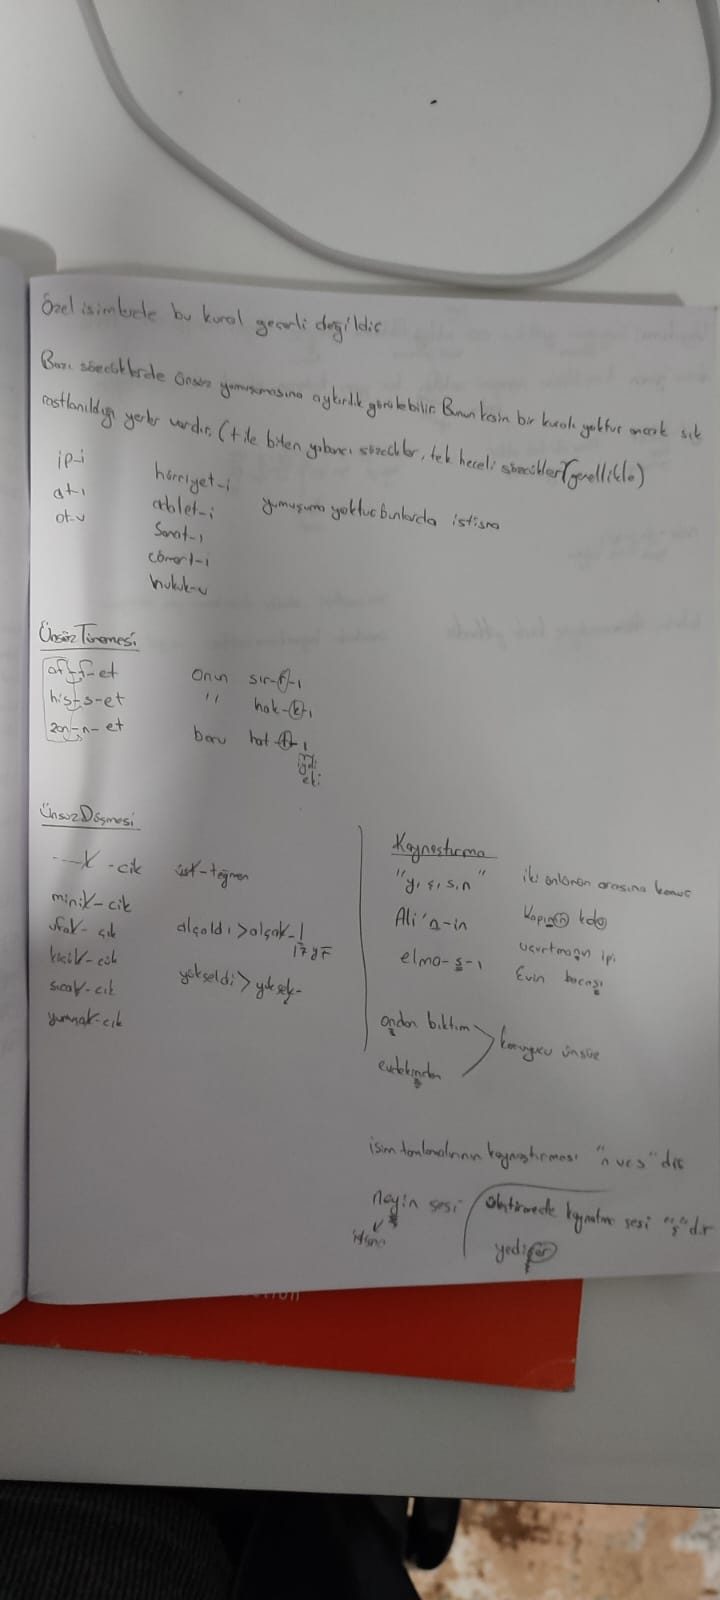 Özel isimlerde bu kural geçerli değildir
Bazı sözcüklerde ünsüz yumuşamasına aykırılık görülebilir. Bunun kesin bir kuralı yoktur ancak sık
rastlanıldığı yerler vardır. (t ile biten yabancı sözcükler, tek heceli sözcükler (genellikle)
ip-i
at-ı
ot-u
hürriyet-i
adalet-i
Sanat-ı
cömert-i
hukuk-u
yumuşama yoktur bunlarda istisna
Ünsüz Türemesi
af-f-et
his-s-et
zan-n-et
Onun sır-r-ı
" hak-k-ı
boru hat-t-ı
iyelik
eki
Ünsüz Düşmesi
---k -cik
minik-cik
ufak-cık
küçük-cük
sıcak-cık
yumuşak-cık
üst-teğmen
alçaldı > alçak-l
yükseldi > yüksek-
Kaynaştırma
"y, ş, s, n"
Ali'n-in
elma-s-ı
iki ünlünün arasına konur
Kapının kolu
uçurtmanın ipi
Evin bacası
ondan bıktım
evdekinden
koruyucu ünsüz
isim tamlamalarının kaynaştırması "n ve s" dir
neyin sesi
istisna
kaynaştırma sesi "ş" dır
yedişer